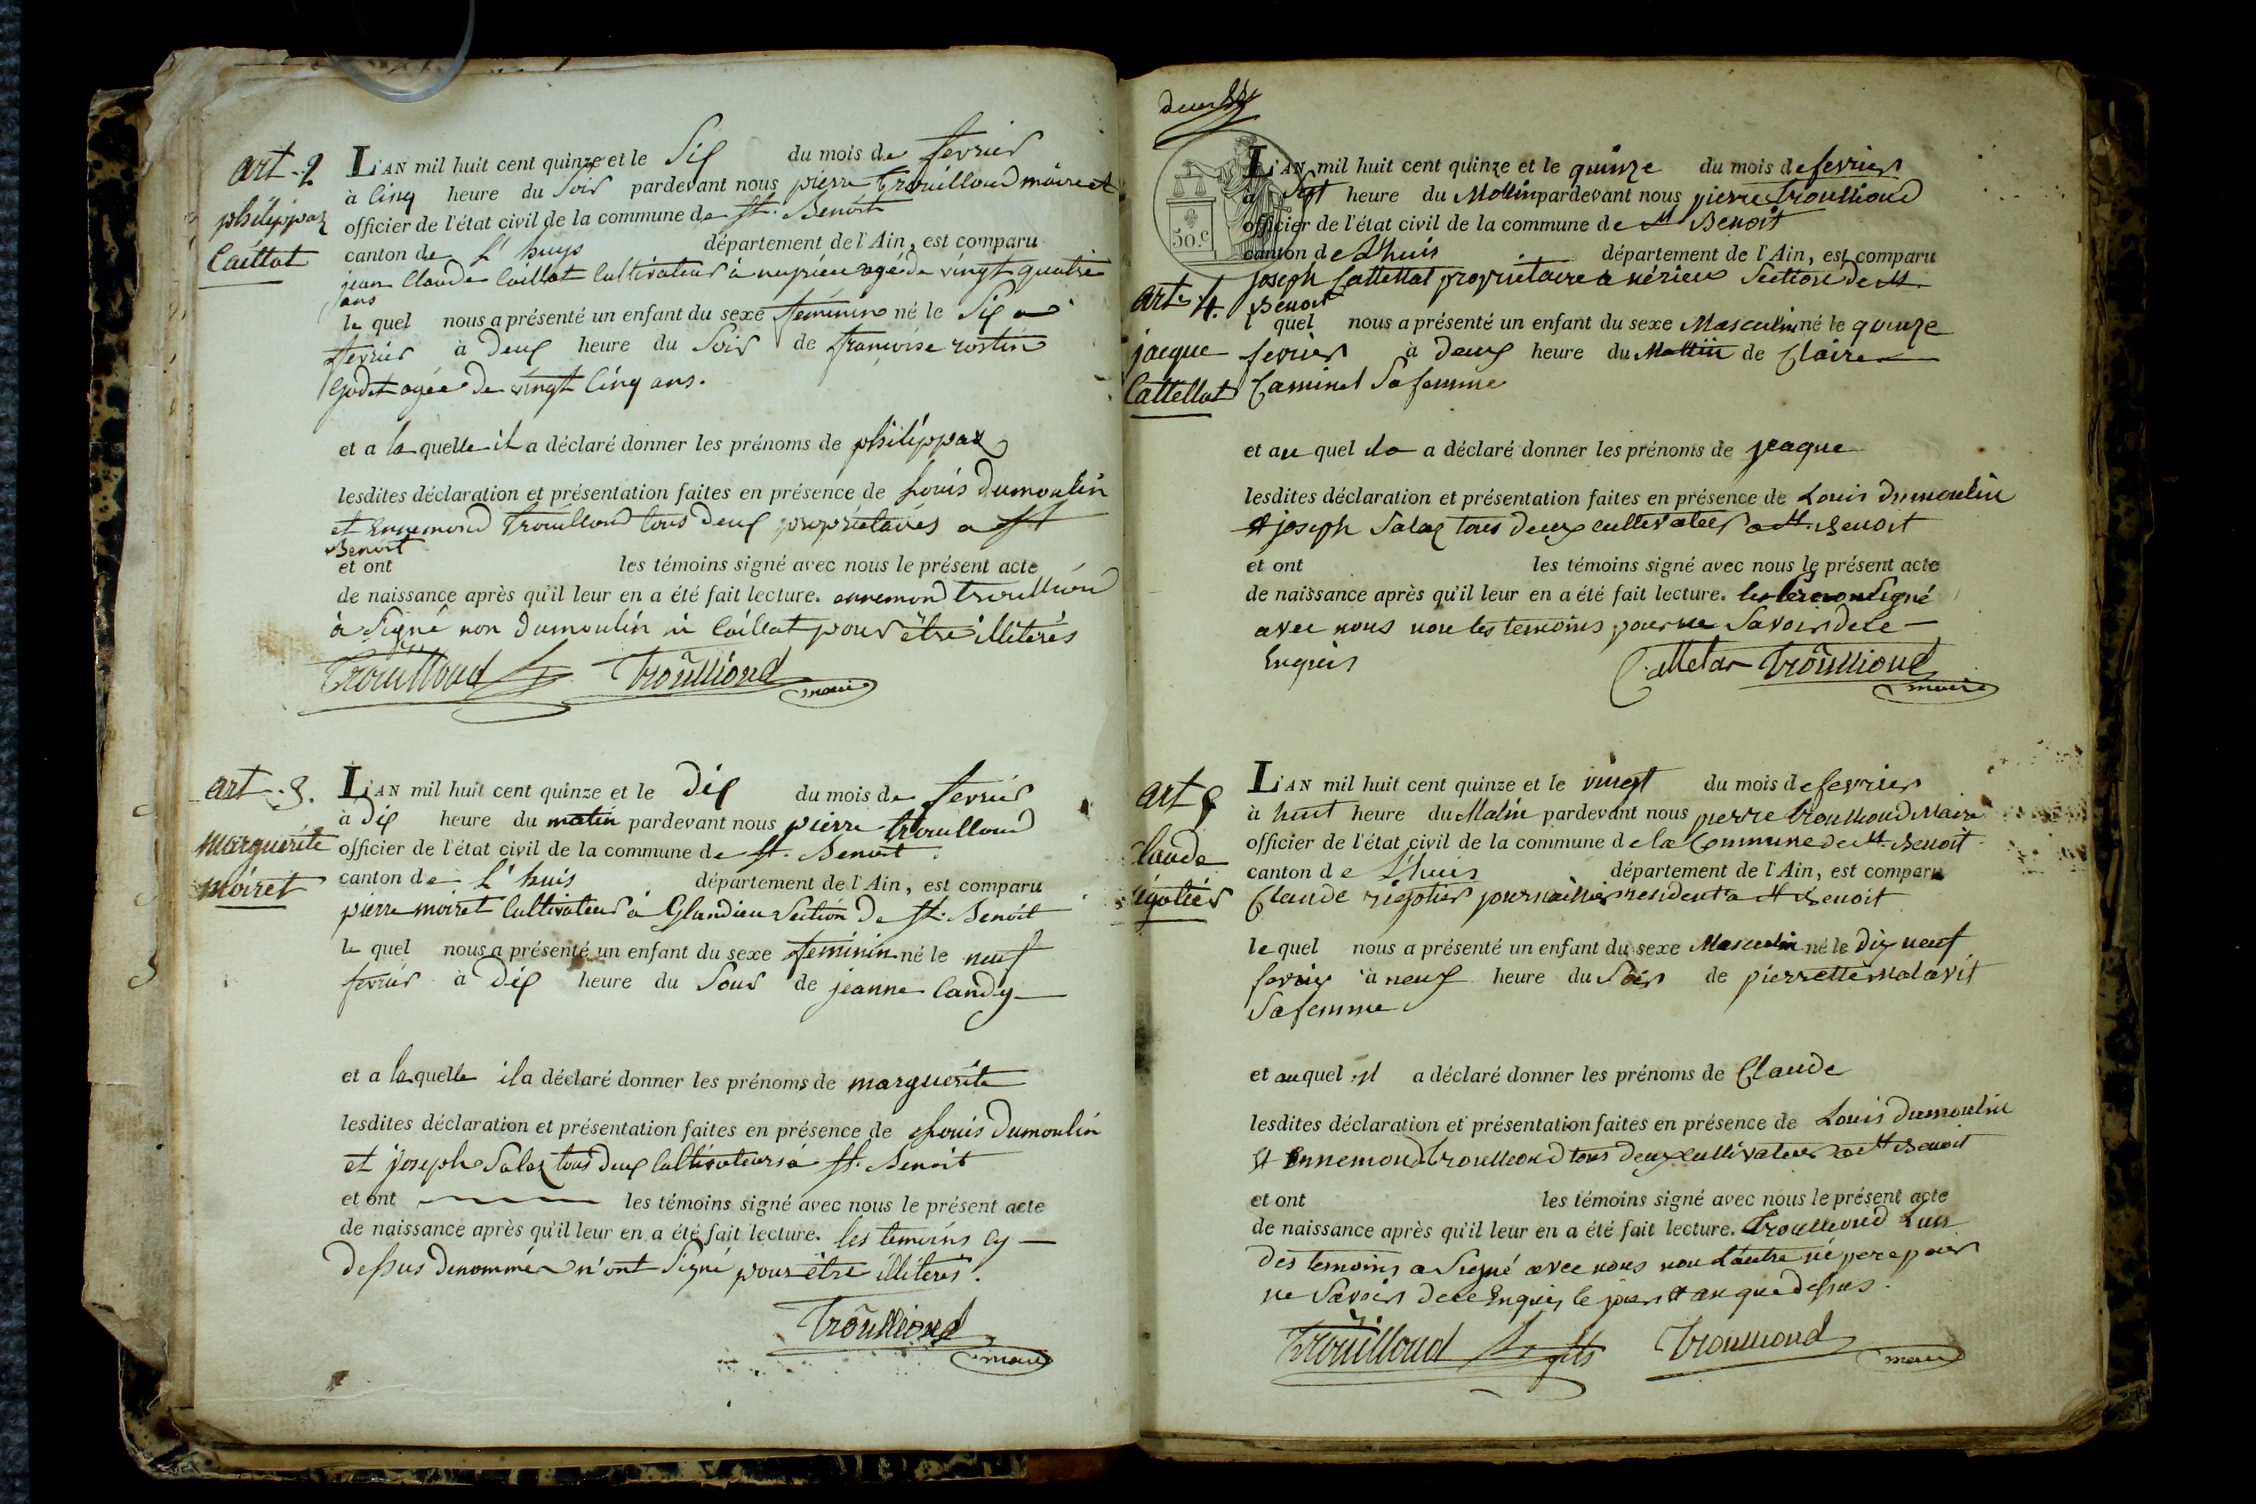 art. 2
philippaz
Caillat
L'AN mil huit cent quinze et le Six du mois de fevrier
à Cinq heure du Soir pardevant nous pierre trouilloud maire et
officier de l'état civil de la commune de St. Benoit
canton de L'huys département de l'Ain, est comparu
jean Claude Caillat Cultivateur à nerieu agé de vingt quatre
ans
le quel nous a présenté un enfant du sexe féminin né le Six
fevrier à Deux heure du Soir de francoise rostin
Godet agée de vingt Cinq ans.
et a la quelle il a déclaré donner les prénoms de philippaz
lesdites déclaration et présentation faites en présence de Louis dumoulin
et Ennemond trouilloud tous deux propriétaires a St
Benoit
et ont les témoins signé avec nous le présent acte
de naissance après qu'il leur en a été fait lecture. ennemond trouilloud
à Signé non dumoulin ni Caillat pour être illiterés
Trouilloud Trouilloud
maire
art. 3.
marguerite
moiret
L'AN mil huit cent quinze et le Dix du mois de fevrier
à Dix heure du matin pardevant nous pierre trouilloud
officier de l'état civil de la commune de St. Benoit
canton de L'huis département de l'Ain, est comparu
pierre moiret Cultivateur à Glandieu Section de St. Benoit
le quel nous a présenté un enfant du sexe féminin né le neuf
fevrier à Dix heure du Soir de jeanne Candy
et a la quelle il a déclaré donner les prénoms de marguerite
lesdites déclaration et présentation faites en présence de Louis dumoulin
et joseph Salaz tous deux Cultivateurs à St. Benoit
et ont les témoins signé avec nous le présent acte
de naissance après qu'il leur en a été fait lecture. les temoins Cy
dessus denommés n'ont Signé pour être illiterés.
Trouilloud
maire
deux
50.c
art. 4.
jacque
Cattellat
L'AN mil huit cent quinze et le quinze du mois de fevrier
à Sept heure du Mattin pardevant nous pierre trouilloud
officier de l'état civil de la commune de St Benoit
canton de Lhuis département de l'Ain, est comparu
joseph Cattellat propriétaire a nérieu Section de St
Benoit
l quel nous a présenté un enfant du sexe Masculin né le quinze
fevrier à deux heure du Mattin de Claire
Caminet Sa femme
et au quel il a a déclaré donner les prénoms de jeaque
lesdites déclaration et présentation faites en présence de Louis dumoulin
et joseph Salaz tous deux cultivateurs a St. Benoit
et ont les témoins signé avec nous le présent acte
de naissance après qu'il leur en a été fait lecture. le signé
avec nous non les temoins pour ne Savoir de ce
Enquis
Cattelat Trouilloud
maire
art 5
Claude
rigotier
L'AN mil huit cent quinze et le vingt du mois de fevrier
à huit heure du Matin pardevant nous pierre trouilloud Maire
officier de l'état civil de la commune de la Commune de St. Benoit
canton de Lhuis département de l'Ain, est comparu
Claude rigotier journailier resident a St Benoit
le quel nous a présenté un enfant du sexe Masculin né le Dix neuf
fevrier à neuf heure du Soir de pierrette Malavit
Sa femme
et au quel il a déclaré donner les prénoms de Claude
lesdites déclaration et présentation faites en présence de Louis dumoulin
et Ennemond trouilloud tous deux cultivateurs a St Benoit
et ont les témoins signé avec nous le présent acte
de naissance après qu'il leur en a été fait lecture. trouilloud Lun
des temoins a Signé avec nous non Lautre né pere pour
ne Savoir de ce Enquis le jour et an que dessus.
Trouilloud fils Trouilloud
maire